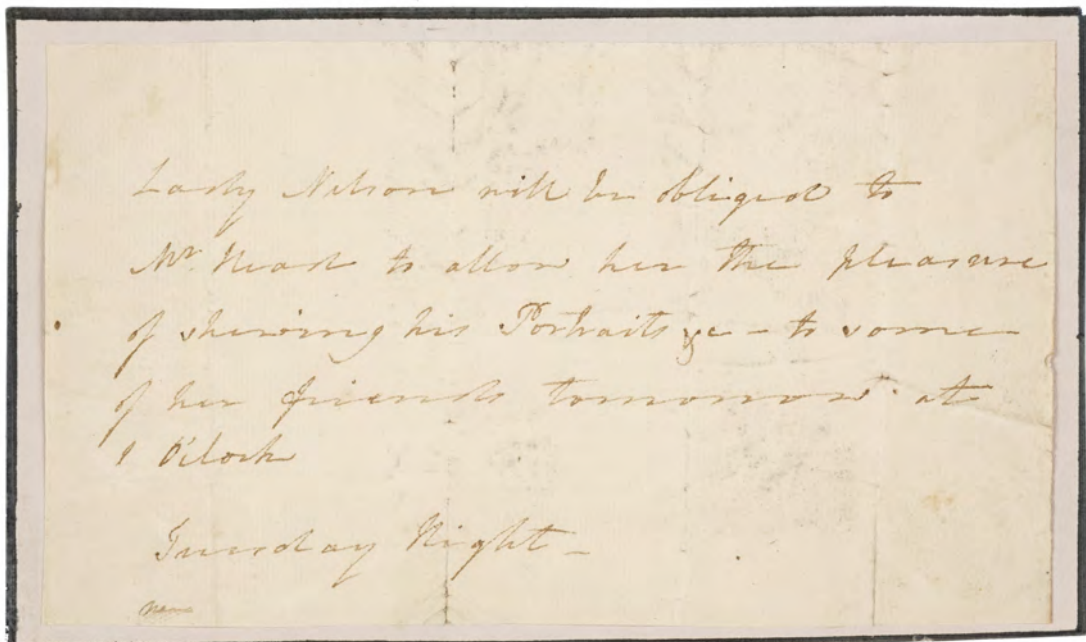 Lady Nelson will be obliged to
Mr. Head to allow her the pleasure
of shewing his Portraits &c - to some
of her friends tomorrow at
1 O'Clock
Tuesday Night -